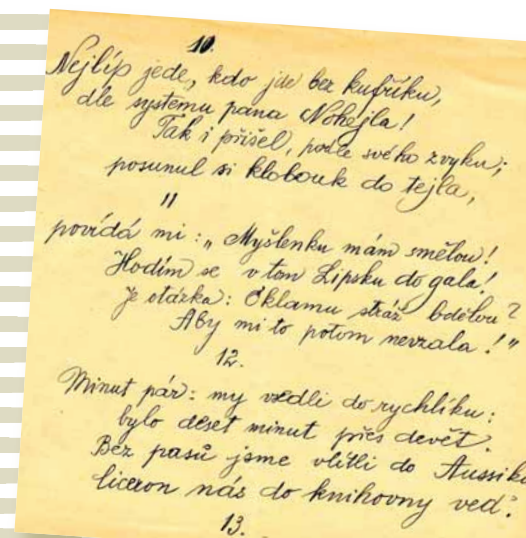 10.
Nejlíp jede, kdo jde bez kufříku,
dle systemu pana Nohejla!
Tak i přišel, podle svého zvyku;
posunul si klobouk do tejla,
11
povídá mi: „Myšlenku mám smělou!
Hodím se v tom Lipsku do gala!
Je otázka: Oklamu stráž bdělou?
Aby mi to potom nevzala!"
12.
Minut pár: my vsedli do rychlíku:
bylo deset minut přes devět.
Bez pasů jsme vlítli do Aussiku
ciceron nás do knihovny ved.
13.